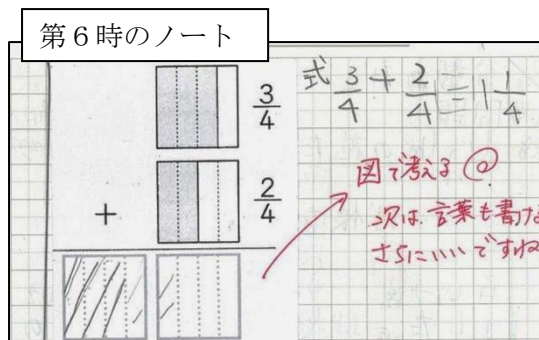 第6時のノート
3/4
式 3/4 + 2/4 = 1 1/4
+ 2/4
図で考える◎
次は、言葉も書ける
さらにいいですね